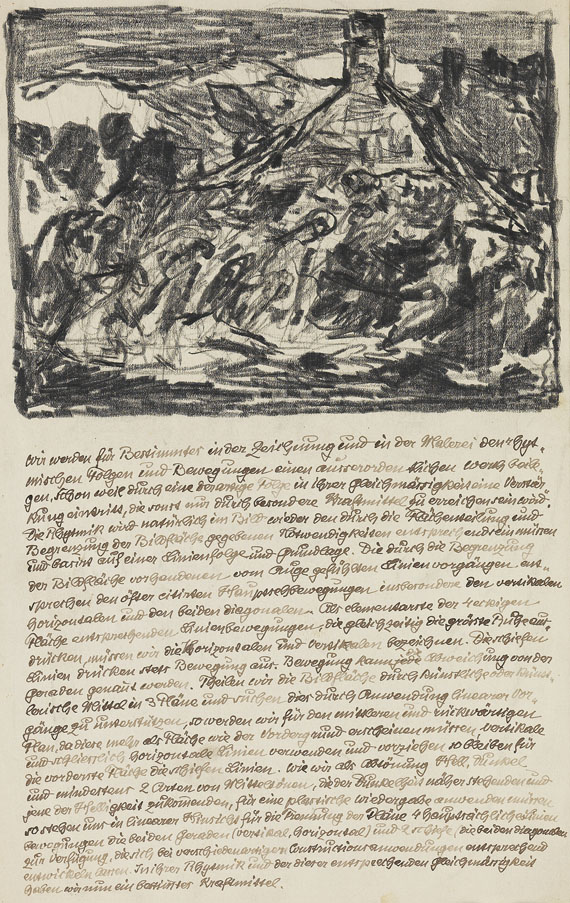 Wir werden für Bestimmtes in der Zeichnung und in der Malerei den rhyt-
mischen Folgen und Bewegungen einen ausserordentlichen Werth beile-
gen, schon weil durch eine derartige Folge in ihrer Gleichmässigkeit eine Verstär-
kung eintritt, die sonst nur durch besondere Kraftmittel zu erreichen sein wird.
Die Rhytmik wird natürlich im Bild wieder den durch die Flächenteilung und
Begrenzung der Bildfläche gegebenen Notwendigkeiten entsprechend sein müssen
und basirt auf einer Linienfolge und Grundlage. Die durch die Begrenzung
der Bildfläche vorhandenen vom Auge geführten Linienvorgängen ent-
sprechen den öfter citirten Hauptsehbewegungen insbesondere den vertikalen
horizontalen und den beiden diagonalen. Als elementarste der 4 eckigen
Fläche entsprechenden Linienbewegungen, die gleichzeitig die grösste Ruhe aus-
drücken, müssen wir die Horizontalen und Vertikalen bezeichnen. Die schiefen
Linien drücken stets Bewegung aus. Bewegung kann jede Abweichung von der
geraden genannt werden. Theilen wir die Bildfläche durch künstliche oder künst-
lerische Mittel in 3 Pläne und suchen dies durch Anwendung linearer Vor-
gänge zu unterstützen, so werden wir für den mittleren und rückwärtigen
Plan, da diese mehr als Fläche wie der Vordergrund erscheinen müssen vertikale
und schliesslich horizontale Linien verwenden und vorziehen so bleiben für
die vorderste Fläche die schiefen Linien. Wie wir als Abtönung Hell, Dunkel
und mindestens 2 Arten von Mitteltönen, die der Dunkelheit näher stehenden und
jene der Helligkeit zukommenden, für eine plastische Wiedergabe anwenden müssen
so stehen uns in linearer Hinsicht für die Trennung der Pläne 4 hauptsächliche Linien
bewegungen die beiden geraden (vertikal, horizontal) und 2 schiefe (die beiden diagonalen
zur Verfügung, die sich bei verschiedenartigen Constructionsanwendungen entsprechend
entwickeln lassen. In ihrer Rhytmik und der dieser entsprechenden Gleichmässigkeit
haben wir nun ein bestimmtes Kraftmittel.